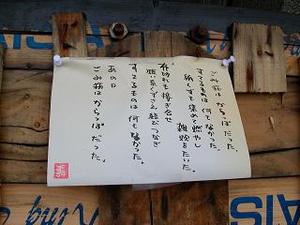 ごみ箱は からっぽ だった。
すてるものは 何も なかった。
紙くずを 集めて 燃やし
雑炊をたいた。
布切れも 接ぎ合せ
短い糸くずさえ 結びつなぎ
すてるものは 何も なかった。
あの日
ごみ箱は からっぽ だった。
SIA
King
SIA